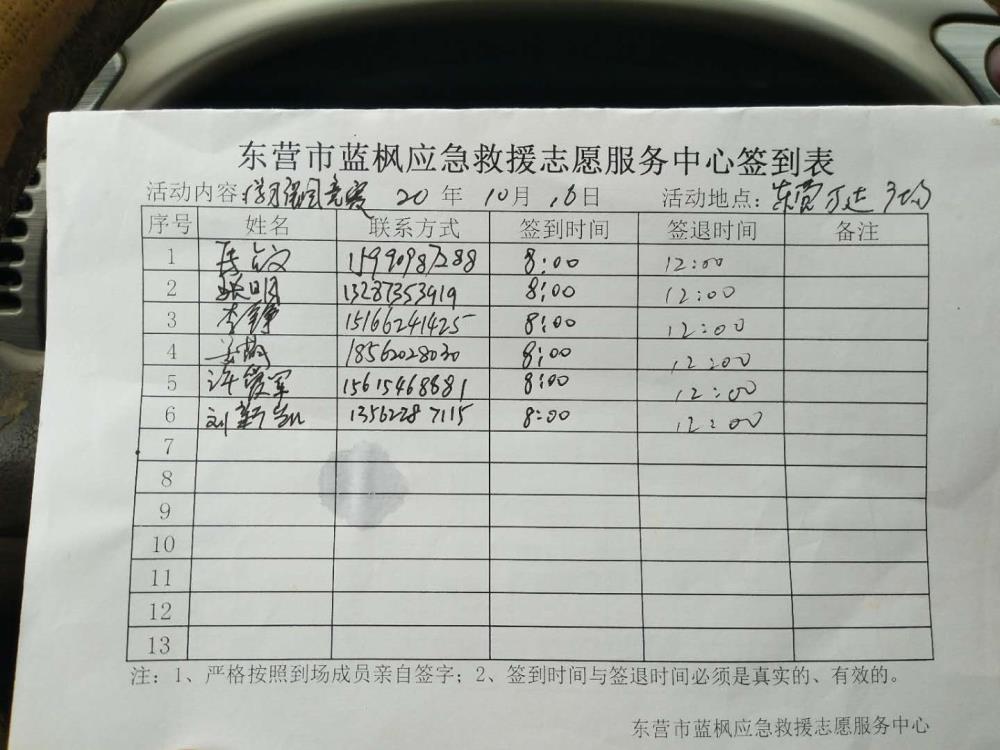 东营市蓝枫应急救援志愿服务中心签到表
活动内容:学习强国竞赛 20 年 10月 16日 活动地点:东营万达广场
序号 姓名 联系方式 签到时间 签退时间 备注
1 15990987288 8:00 12:00
2 张明 13287353919 8:00 12:00
3 李静 15166241425 8:00 12:00
4 18562028030 8:00 12:00
5 许爱军 15615468881 8:00 12:00
6 刘新凯 13562287115 8:00 12:00
7
8
9
10
11
12
13
注:1、严格按照到场成员亲自签字;2、签到时间与签退时间必须是真实的、有效的。
东营市蓝枫应急救援志愿服务中心